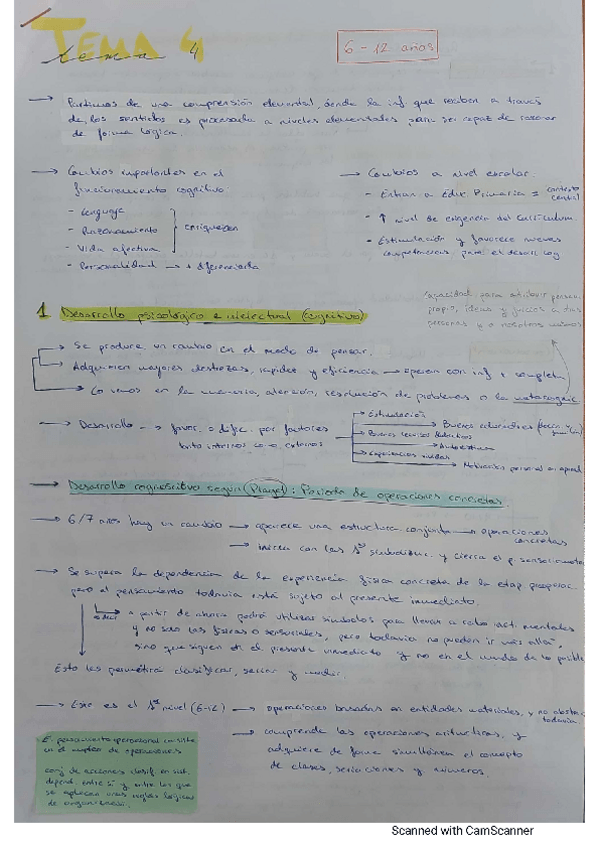 TEMA 4
tema 4
6-12 años
→ Partimos de una comprensión elemental, donde la inf que reciben a través
de los sentidos es procesada a niveles elementales para ser capaz de razonar
de forma lógica.
→ Cambios importantes en el
funcionamiento cognitivo:
- Lenguaje
- Razonamiento
- Vida afectiva
enriquecen
- Personalidad → + diferenciada
→ Cambios a nivel escolar.
- Entran a Educ. Primaria = contexto
central
- ↑ nivel de exigencia del currículum
- Estimulación y favorece nuevas
competencias para el desarr. cog
Capacidad para atribuir pensa.
propios, ideas y juicios a otras
personas y a nosotros mismos
1 Desarrollo psicológico e intelectual (cognitivo)
→ Se produce un cambio en el modo de pensar.
→ Adquieren mayores destrezas, rapidez y eficiencia → operan con inf + complej.
→ Lo vemos en la memoria, atención, resolución de problemas o la metacognic.
→ Desarrollo → favor. o dific. por factores
tanto internos como externos
→ Estimulación
→ Buenos
→ Experiencias vividas
→ Autoestima
→ Motivación personal
→ Desarrollo cognoscitivo según (Piaget): Periodo de operaciones concretas.
→ 6/7 años hay un cambio → aparece una estructura conjunta → operaciones
concretas
→ inicia con las y cierra el p. sensoriomotor
→ Se supera la dependencia de la experiencia física concreta de la etap. preoperac.
pero el pensamiento todavía está sujeto al presente inmediato.
es decir a partir de ahora podrá utilizar símbolos para llevar a cabo act. mentales
y no solo las físicas o sensoriales, pero todavía no pueden ir más allá,
sino que siguen en el presente inmediato y no en el mundo de lo posible
Esto les permitirá clasificar, seriar y
→ Este es el 1er nivel (6-12) → operaciones basadas en entidades materiales, y no abstrac.
todavía
→ comprende las operaciones aritméticas, y
adquiere de forma simultánea el concepto
de clases, seriaciones y números.
El pensamiento operacional consiste
en el empleo de operaciones
conj. de acciones clasif. en sist.
depend. entre sí y entre los que
se aplican unas reglas lógicas
de organización.
Scanned with CamScanner